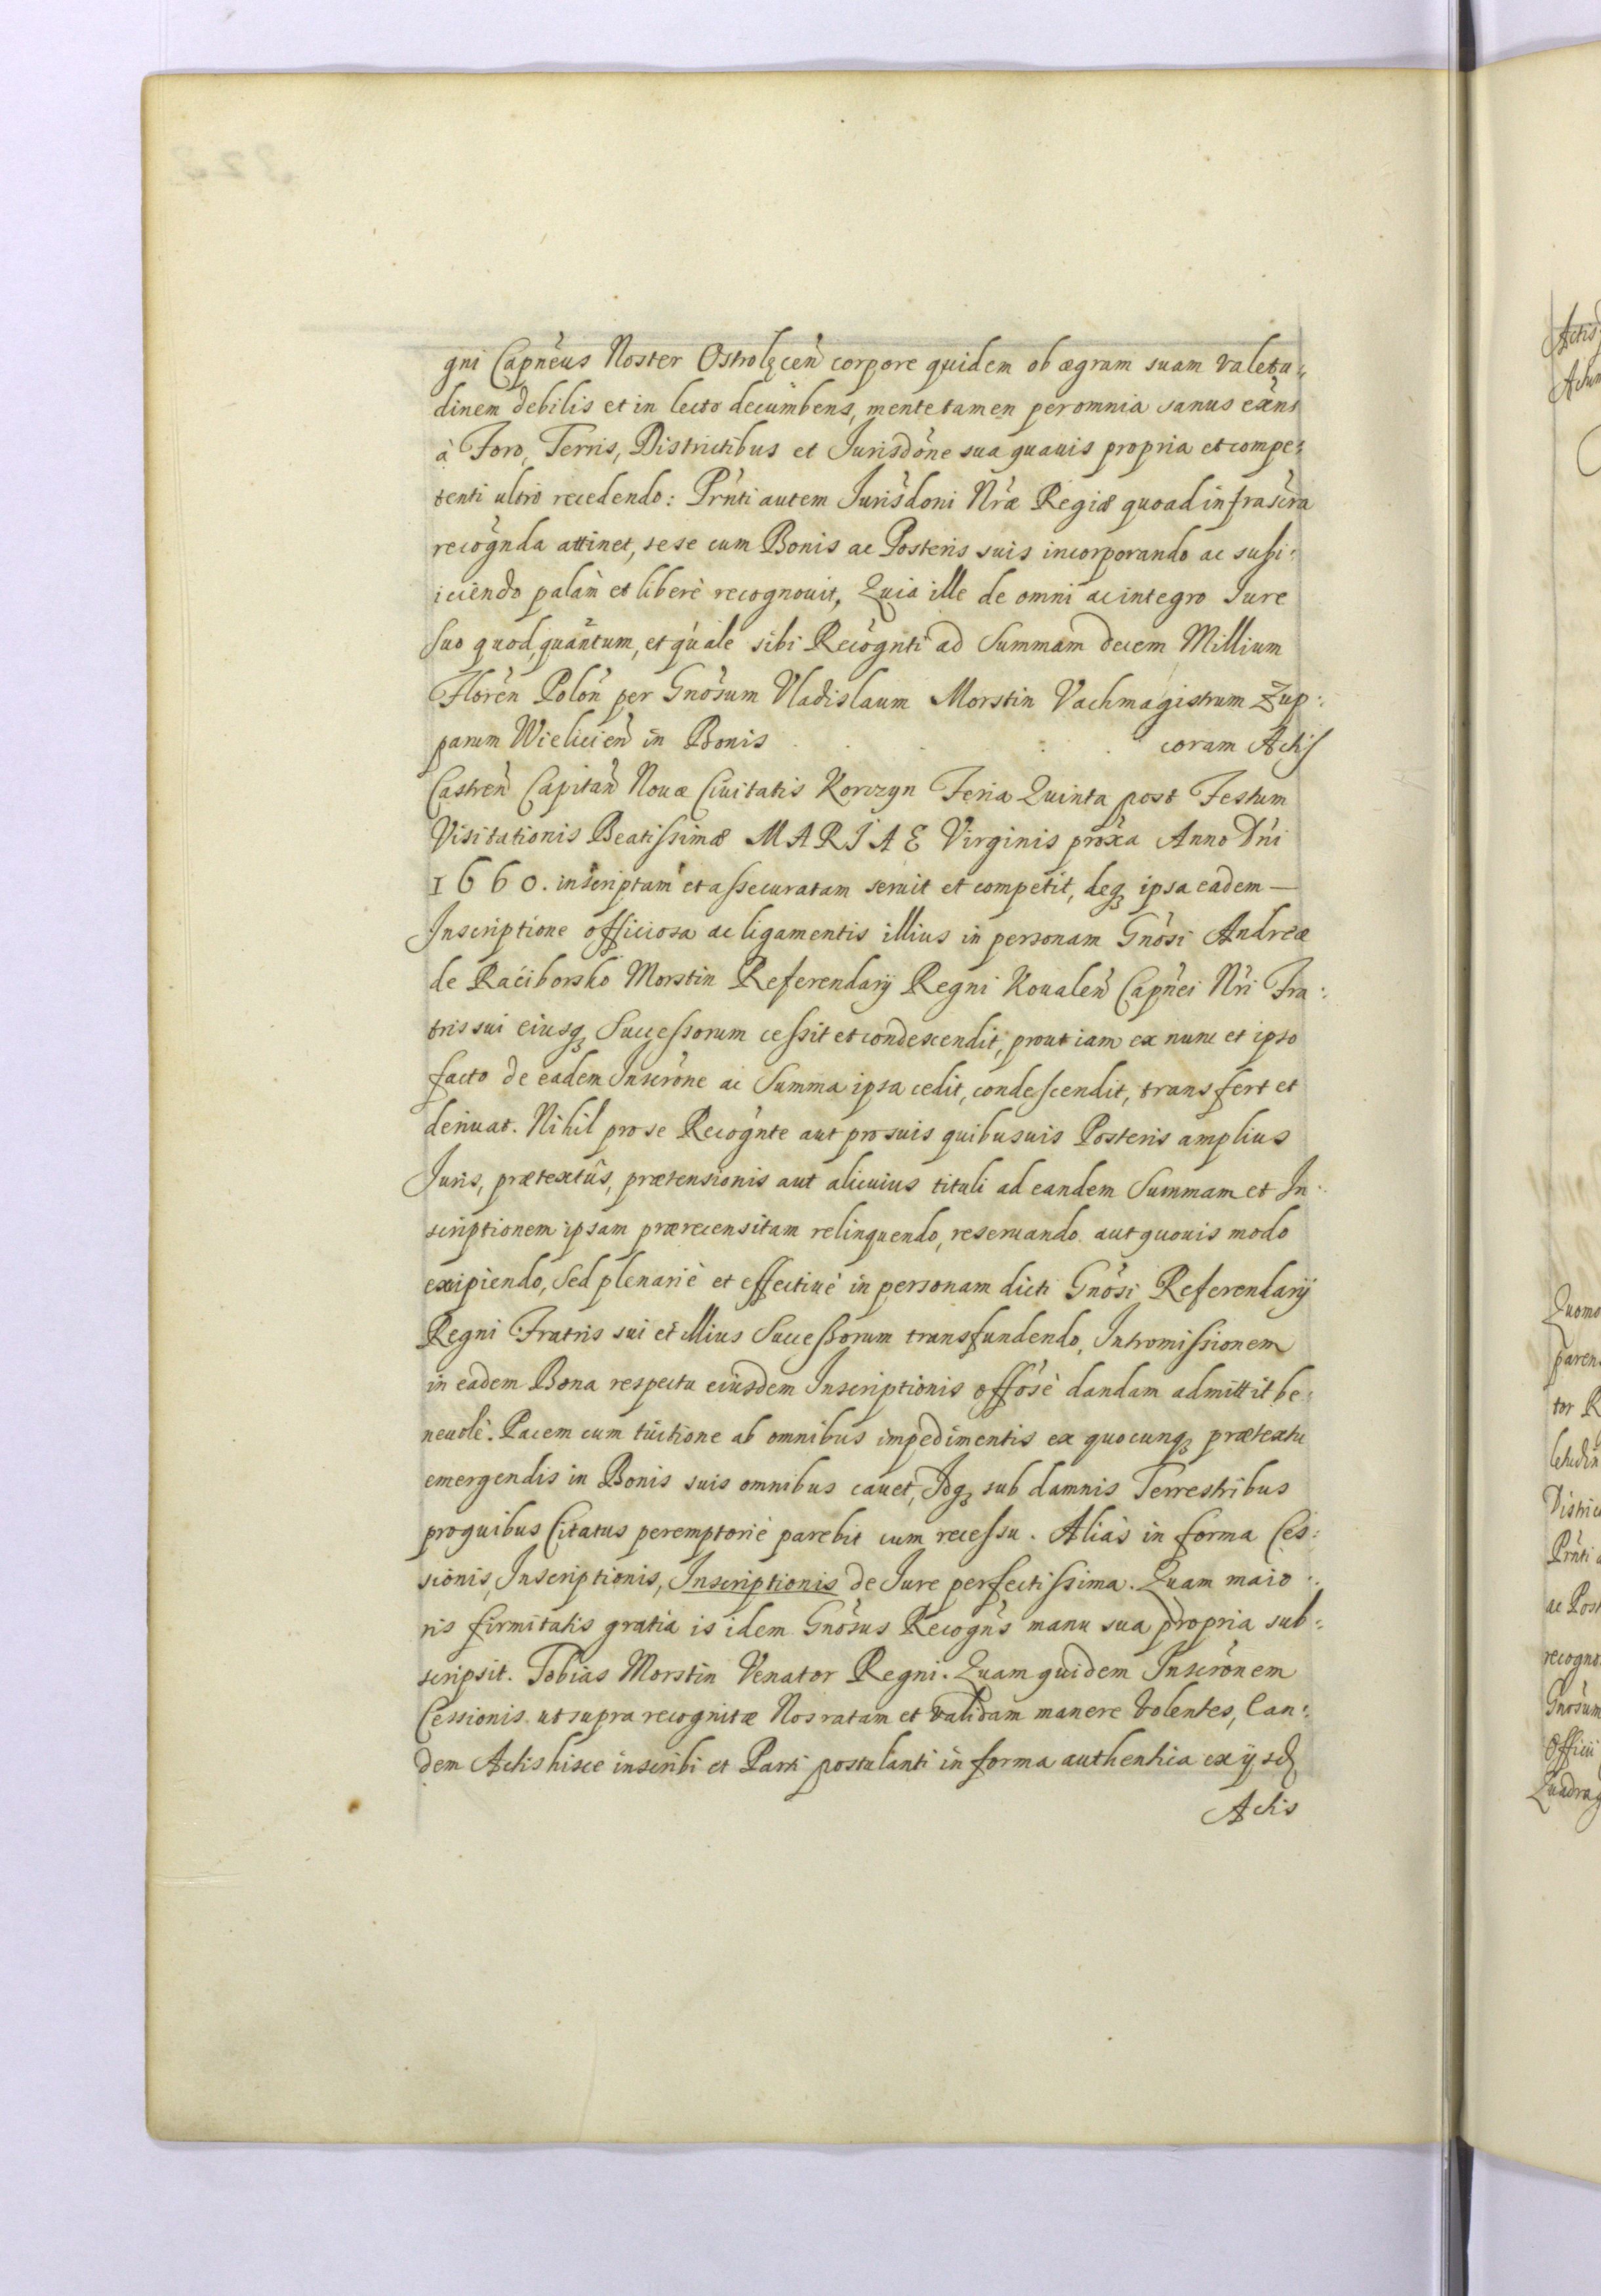 gni Capneus Noster Ostrolęcen̄ corpore quidem ob ægram suam valetu„
dinem debilis et in lecto decumbens, mente tamen per omnia sanus exn̄s
à Foro, Terris, Districtibus et Jurisdōne sua quauis propria et compe:
tenti ultrò recedendo: Prn̄ti autem Jurisdoni Nræ Regiæ quoad infrascra
recognda attinet, sese cum Bonis ac Posteris suis incorporando ac subi:
iciendo palàm et liberè recognouit, Quia ille de omni ac integro Jure
suo quod, quantum, et quale sibi Recognti ad Summam decem Millium
Floren̄ Polon̄ per Gnosum Vladislaum Morstin Vachmagistrum Zup:
parum Wielicien̄ in Bonis . . . . coram Actis
Castren̄ Capitan̄ Nouæ Ciuitatis Korczyn Feria Quinta post Festum
Visitationis Beatissimæ MARIAE Virginis proxa Anno Dn̄i
1660. inscriptam et assecuratam seruit et competit, deq3 ipsa eadem —
Inscriptione officiosa ac ligamentis illius in personam Gnosi Andreæ
de Raciborsko Morstin Referendarij Regni Koualen̄ Capnei Nri Fra:
tris sui eiusq3 Successorum cessit et condescendit, prout iam ex nunc et ipso
facto de eadem Inscrōne ac Summa ipsa cedit, condescendit, transfert et
deriuat. Nihil pro se Recognte aut pro suis quibusuis Posteris amplius
Juris, prætextûs, prætensionis aut alicuius tituli ad eandem Summam et In:
scriptionem ipsam prærecensitam relinquendo, reseruando aut quouis modo
excipiendo, Sed plenariè et effectiuè in personam dicti Gnosi Referendarij
Regni Fratris sui et illius Successorum transfundendo, Intromissionem
in eadem Bona respectu eiusdem Inscriptionis offosè dandam admittit be:
neuolè. Pacem cum tuitione ab omnibus impedimentis ex quocunq3 prætextu
emergendis in Bonis suis omnibus cauet, Idq3 sub damnis Terrestribus
pro quibus Citatus peremptoriè parebit cum recessu. Aliàs in forma Ces:
sionis, Inscriptionis, Inscriptionis de Jure perfectissima. Quam maio:
ris firmitatis gratia is idem Gnosus Recogns manu sua propria sub:
scripsit. Tobias Morstin Venator Regni. Quam quidem Inscrōnem
Cessionis ut supra recognitæ Nos ratam et validam manere volentes, Ean:
dem Actis hisce inscribi et Parti postulanti in forma authentica ex ijsd
Actis